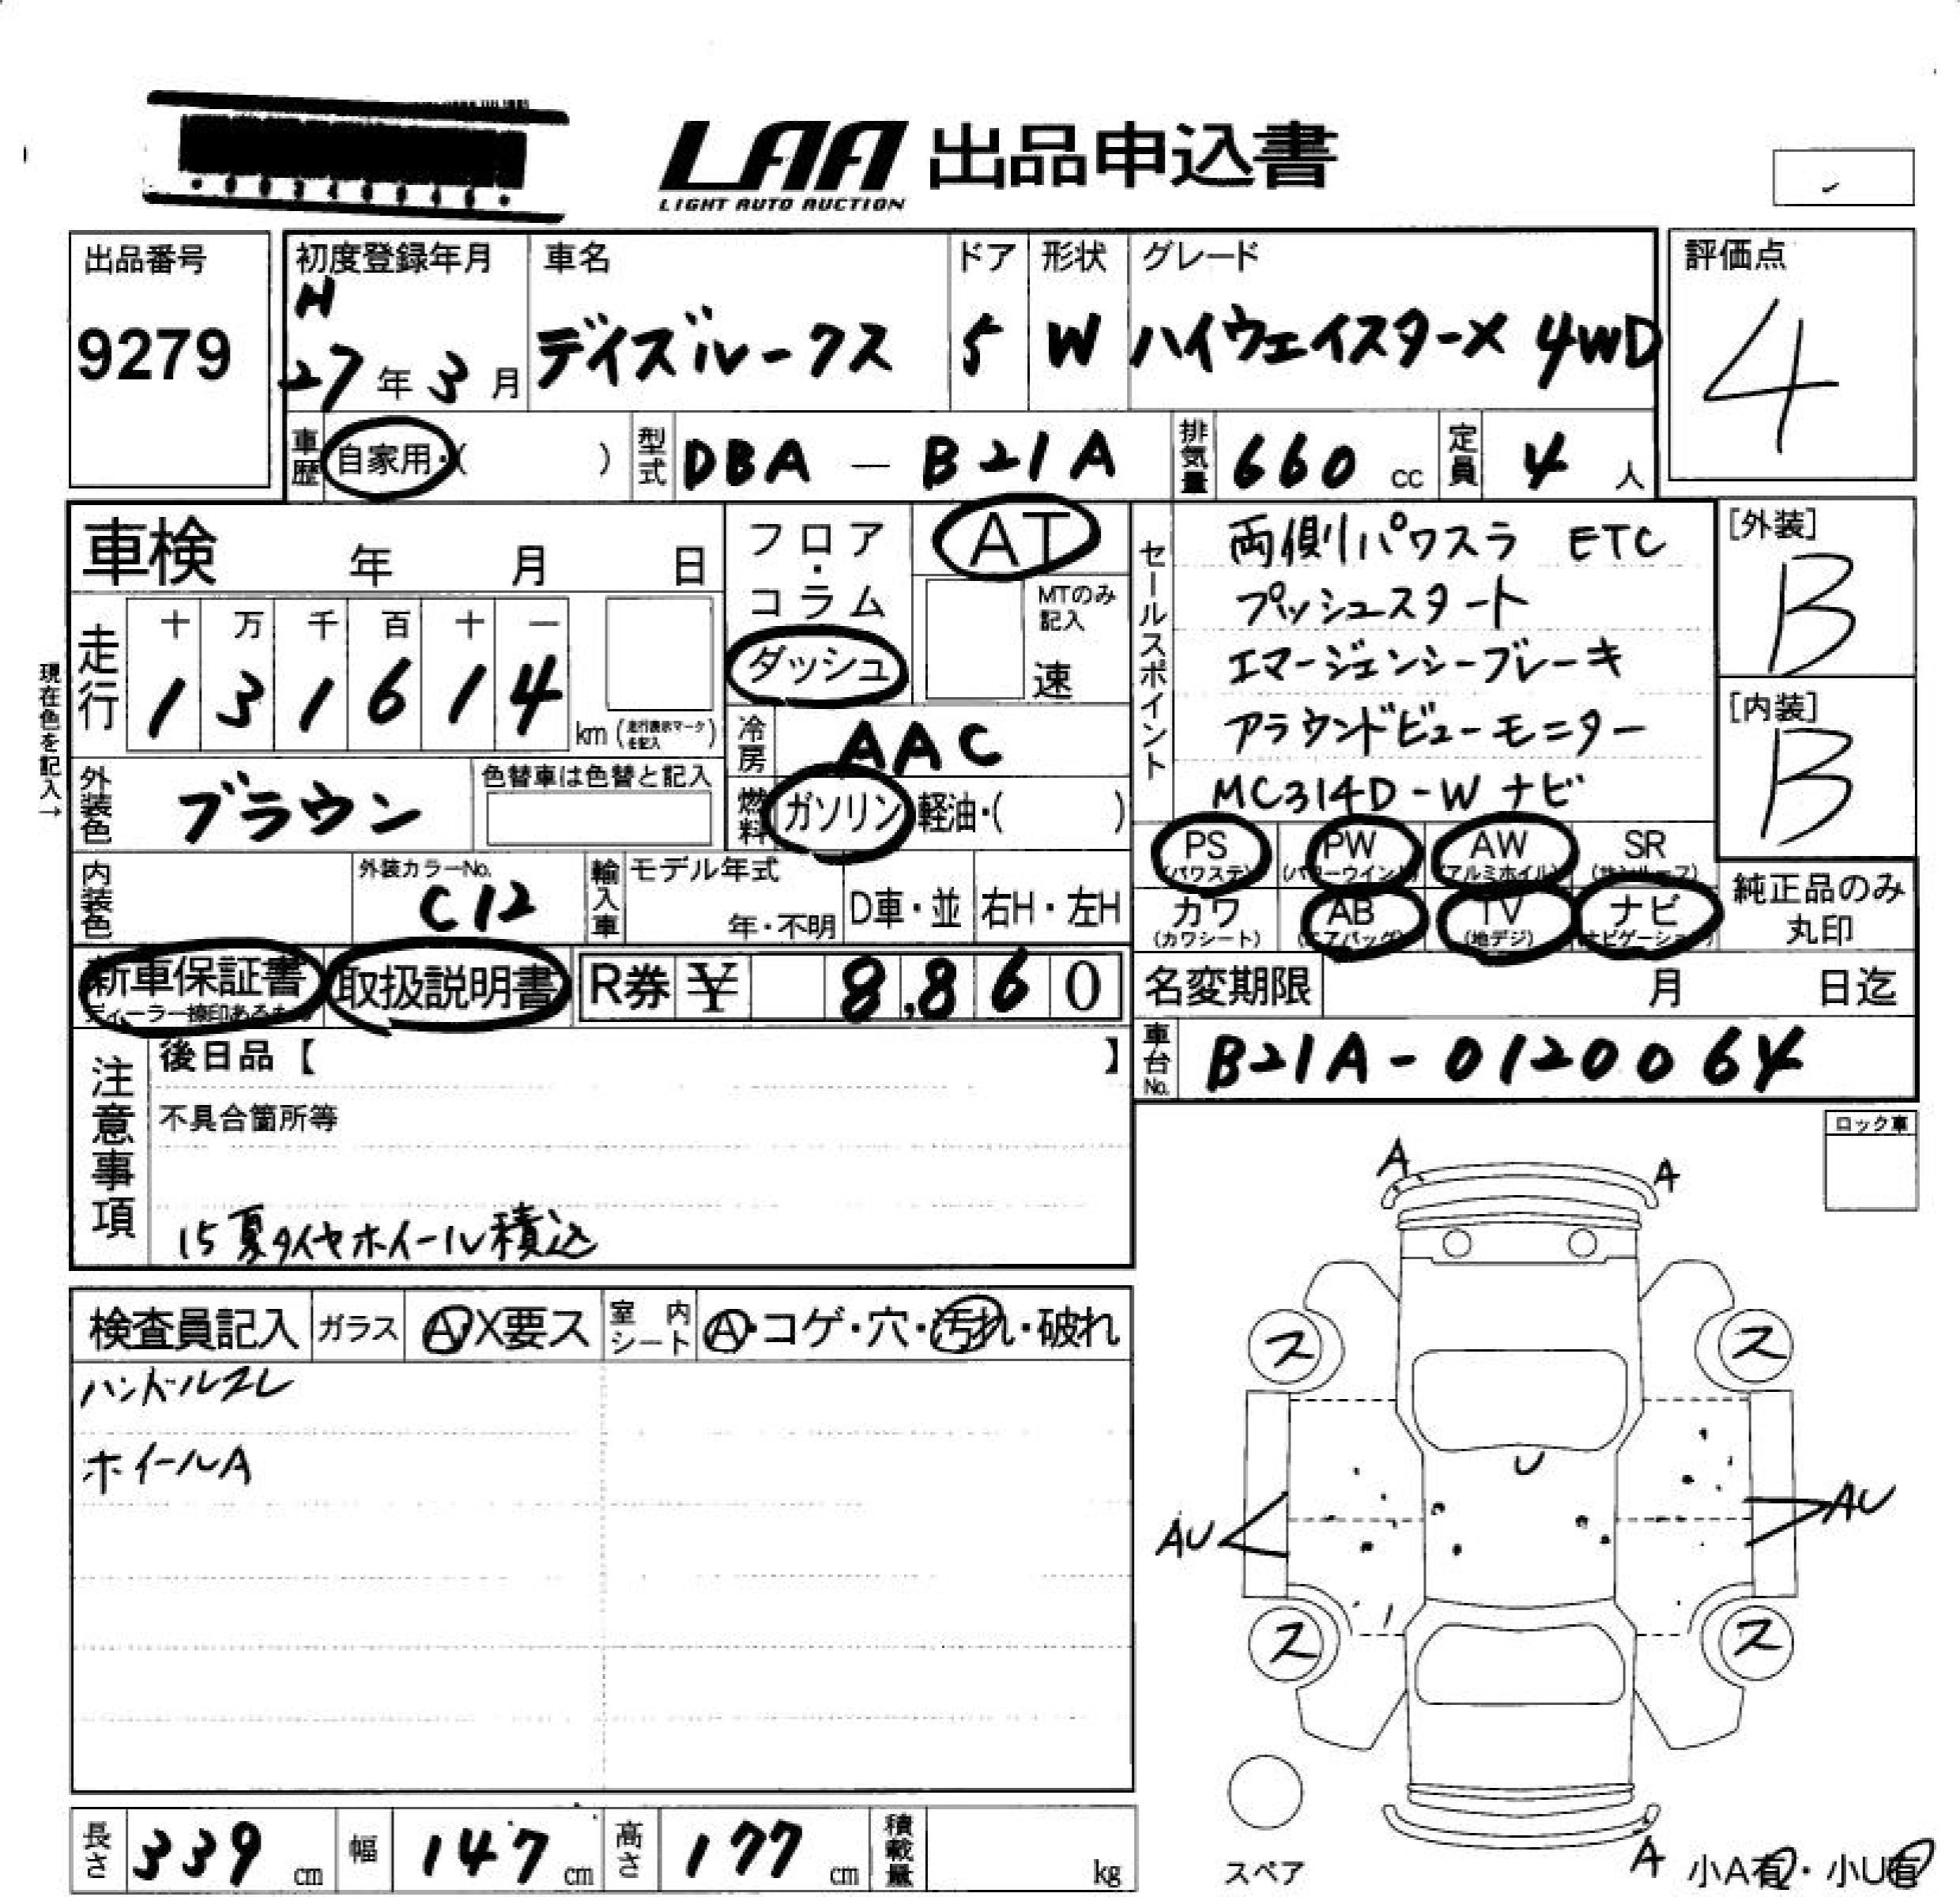 LAA 出品申込書
LIGHT AUTO AUCTION
出品番号
9279
初度登録年月
H
27年3月
車名
デイズルークス
ドア
5
形状
W
グレード
ハイウェイスターX 4WD
評価点
4
車歴 自家用・( )
型式 DBA - B21A
排気量 660 cc
定員 4 人
車検 年 月 日
現在色を記入→
走行
十 万 千 百 十 一
1 3 1 6 1 4
km (走行表示マークを記入)
フロア・コラム
ダッシュ
AT
MTのみ記入
速
冷房 AAC
燃料 ガソリン 軽油・( )
外装色 ブラウン
色替車は色替と記入
内装色
外装カラーNo.
C12
輸入車
モデル年式
年・不明
D車・並
右H・左H
セールスポイント
両側パワスラ ETC
プッシュスタート
エマージェンシーブレーキ
アラウンドビューモニター
MC314D-Wナビ
[外装]
B
[内装]
B
PS (パワステ)
PW (パワーウインド)
AW (アルミホイル)
SR (サンルーフ)
カワ (カワシート)
AB (エアバッグ)
TV (地デジ)
ナビ (ナビゲーション)
純正品のみ丸印
新車保証書
取扱説明書
R券 ¥ 8,860
名変期限 月 日迄
車台No. B21A-0120064
注意事項
後日品【 】
不具合箇所等
15夏タイヤホイール積込
ロック車
検査員記入
ガラス A・X要ス
室内シート A・コゲ・穴・汚れ・破れ
ハンドルスレ
ホイールA
A A
ス ス
U
AU AU
ス ス
A
スペア
小A有・小U有
長さ 339 cm
幅 147 cm
高さ 177 cm
積載量 kg